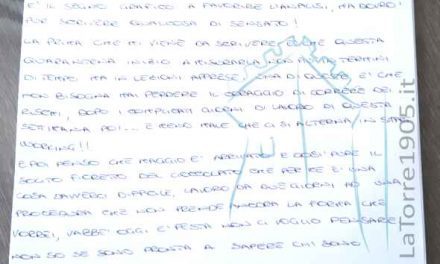 E' IL SEGNO GRAFICO A FAVORIRE L'ANALISI, MA DOVRÒ
PUR SCRIVERE QUALCOSA DI SENSATO!
LA PRIMA CHE MI VIENE DA SCRIVERE È CHE QUESTA
QUARANTENA INIZIO A MISURARLA NON IN TERMINI
DI TEMPO, MA IN LEZIONI APPRESE, UNA DI QUESTE E' CHE
NON BISOGNA MAI PERDERE IL CORAGGIO DI CORRERE DEI
RISCHI, DOPO I COMPLICATI GIORNI DI LAVORO DI QUESTA
SETTIMANA POI... E MENO MALE CHE CI SI ALTERNA IN
WORKING!!
E POI PENSO CHE MAGGIO E' ARRIVATO E COSÌ PURE IL
SOLITO FIORETTO DEL CIOCCOLATO CHE PER ME È UNA
COSA DAVVERO DIFFICILE, LAVORO DA DUE GIORNI AD UNA
PROCEDURA CHE NON PRENDE ANCORA LA FORMA CHE
VORREI, VABBE' OGGI E' FESTA NON CI VOGLIO PENSARE
NON SO SE SONO PRONTA A SAPERE CHI SONO
LaTorre1905.it